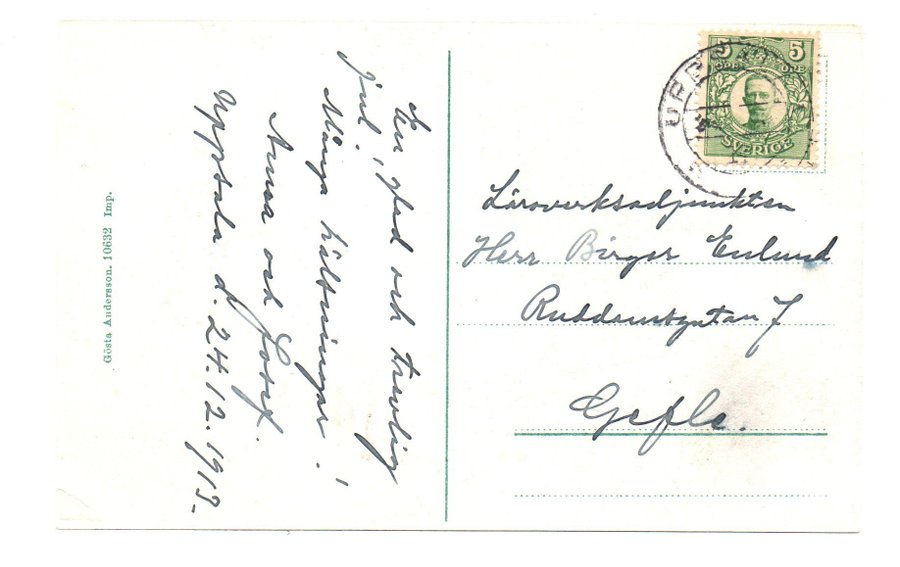 En glad och trevlig
jul!
Många hälsningar!
Anna och Josef.
Uppsala d. 24.12.1913.
Gösta Andersson. 10632 Imp.
5 5
ÖRE ÖRE
SVERIGE
UPPSALA
Läroverksadjunkten
Herr Birger Enlund
Ruddamsgatan 7
Gefle.